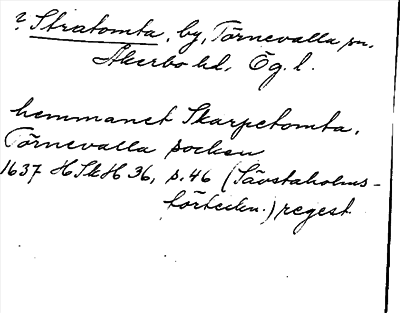 ? Stratomta, by, Törnevalla sn,
Åkerbo hd, Ög. l.
hemmanet Skarpetomta,
Törnevalla socken
1637 HSkH 36, s. 46 (Sävstaholms-
förteckn.) regest